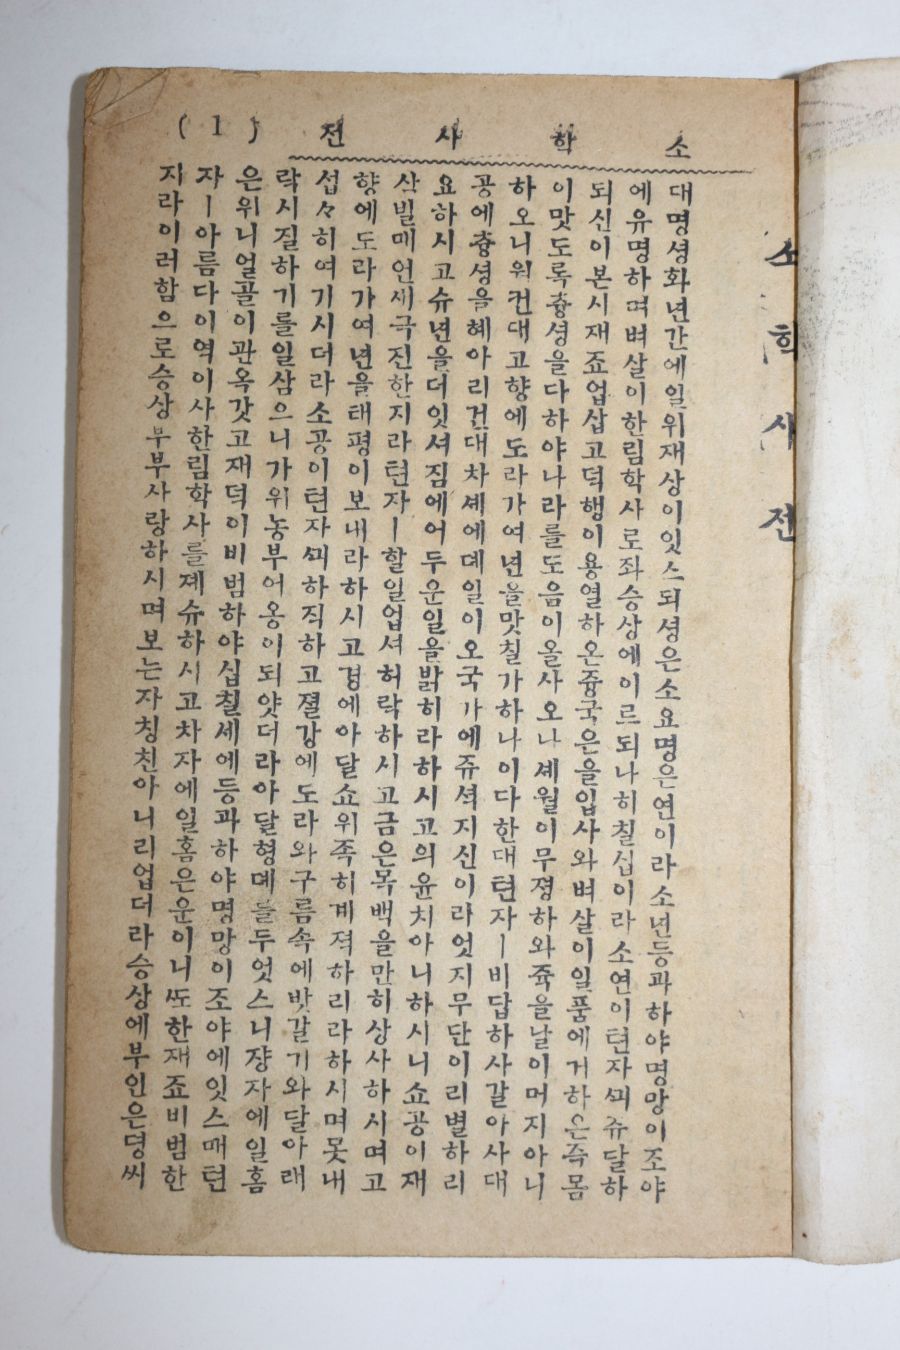 소학사전
소학사전 (1)
대명셩화년간에일위재상이잇스되셩은소요명은연이라소년등과하야명망이조야
에유명하며벼살이한림학사로좌승상에이르되나히칠십이라소연이텬자ᄭᅴ쥬달하
되신이본시재죠업삽고덕행이용열하온즁국은을입사와벼살이일품에거하은즉몸
이맛도록츙셩을다하야나라를도음이올사오나셰월이무졍하와쥭을날이머지아니
하오니워컨대고향에도라가여년을맛칠가하나이다한대텬자ㅣ비답하사갈아사대
공에츙셩을혜아리건대차셰에뎨일이오국가에쥬셕지신이라엇지무단이리별하리
요하시고슈년을더잇셔짐에어두운일을밝히라하시고의윤치아니하시니쇼공이재
삼빌매언새극진한지라텬자ㅣ할일업셔허락하시고금은목백을만히상사하시며고
향에도라가여년을태평이보내라하시고경에아달쇼위족히계젹하리라하시며못내
섭々히여기시더라소공이텬자ᄭᅴ하직하고졀강에도라와구름속에밧갈기와달아래
락시질하기를일삼으니가위농부어옹이되얏더라아달형뎨를두엇스니쟝자에일홈
은위니얼골이관옥갓고재덕이비범하야십칠셰에등과하야명망이조야에잇스매텬
자ㅣ아름다이역이사한림학사를졔슈하시고차자에일홈은운이니ᄯᅩ한재죠비범한
지라이러함으로승상부부사랑하시며보는자칭친아니리업더라승상에부인은뎡씨